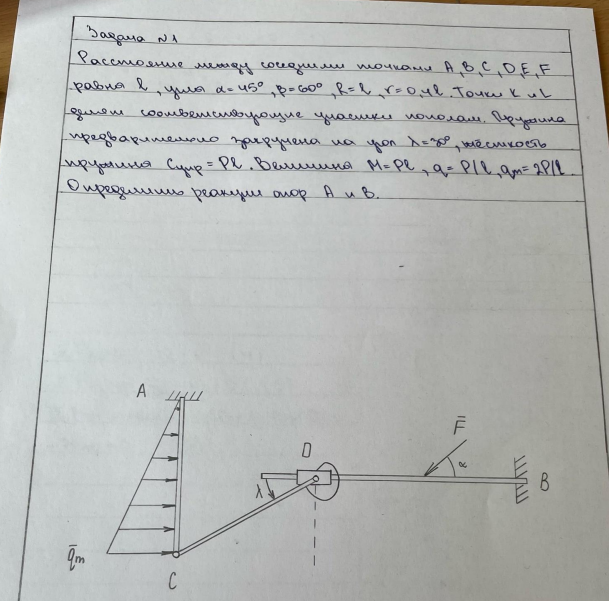 Задача №1
Расстояние между соседними точками A, B, C, D, E, F
равна l, углы α=45°, β=60°, R=l, r=0,4l. Точки K и L
делят соответствующие участки пополам. Пружина
предварительно закручена на угол λ=30°, жёсткость
пружины Cупр=Pl. Величина M=Pl, q=P/l, qm=2P/l.
Определить реакции опор A и B.
A
F̄
D
α
B
λ
q̄m
C